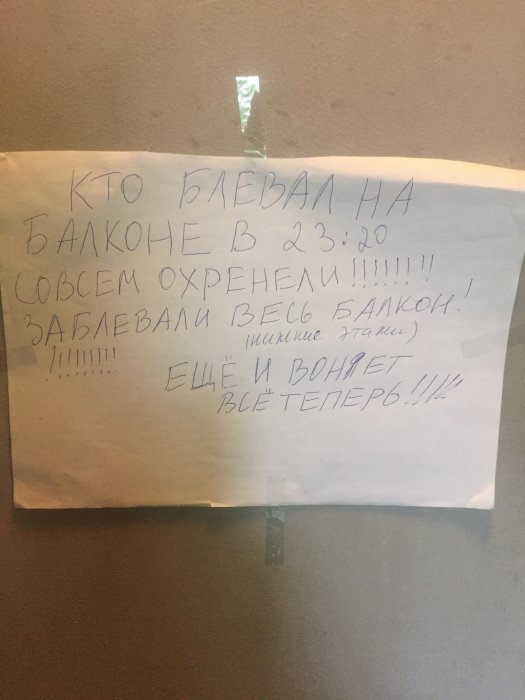 КТО БЛЕВАЛ НА
БАЛКОНЕ В 23:20
СОВСЕМ ОХРЕНЕЛИ!!!!!!!!!
ЗАБЛЕВАЛИ ВЕСЬ БАЛКОН!
(нижние этажи)
!!!!!!!!!
ЕЩЁ И ВОНЯЕТ
ВСЁ ТЕПЕРЬ!!!!!